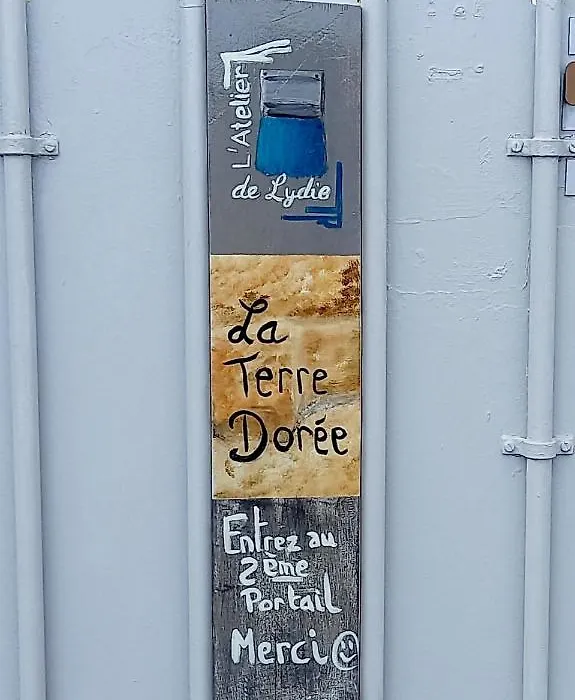 L'Atelier
de Lydie
La
Terre
Dorée
Entrez au
2ème
Portail
Merci